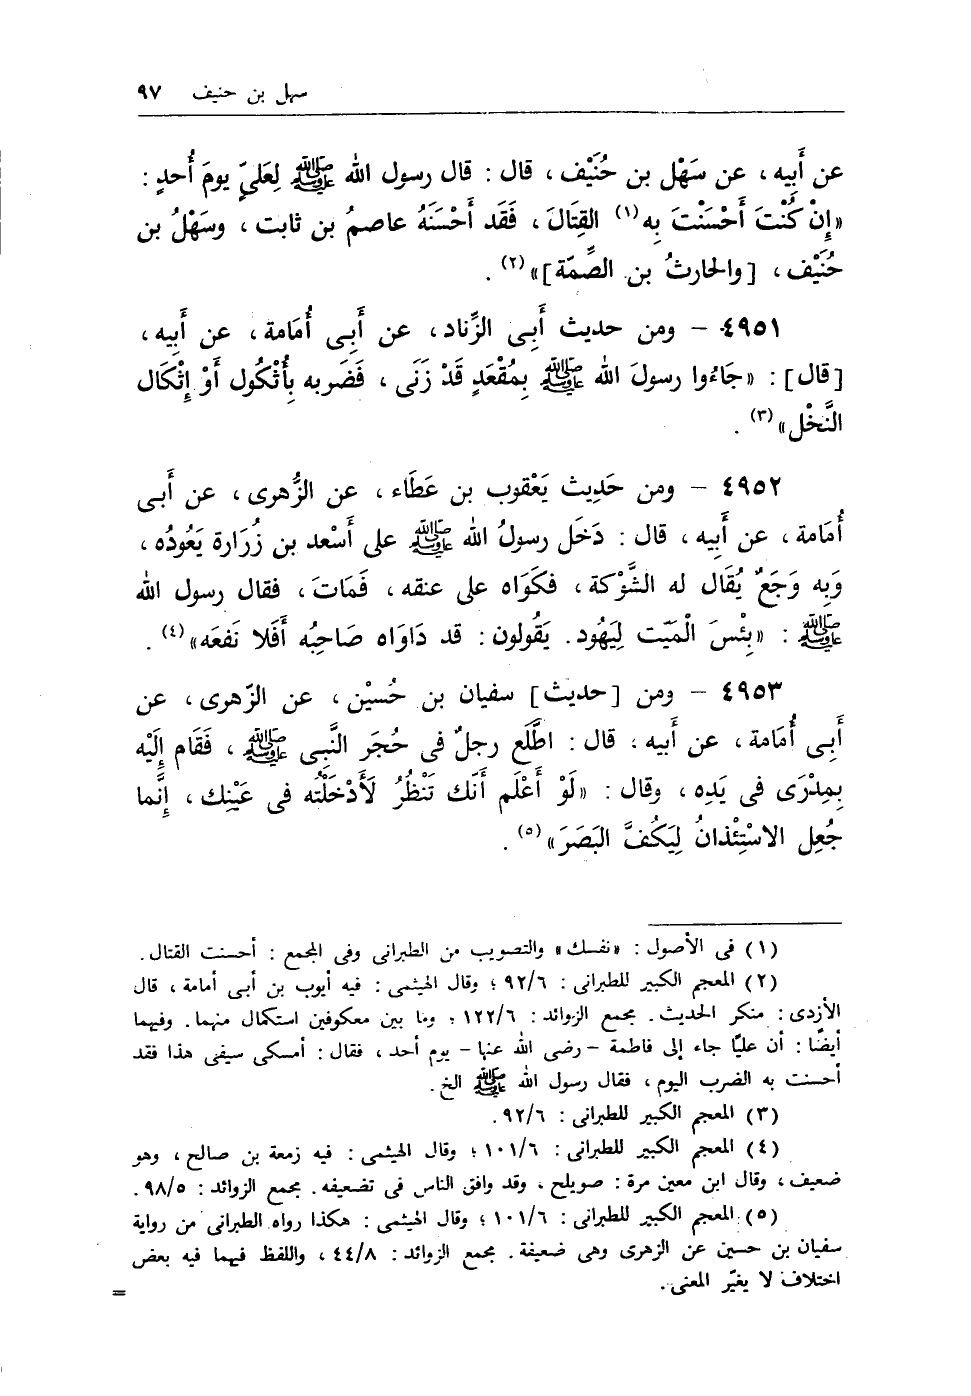 سهل بن حنيف ٩٧
عن أَبِيه ، عن سَهْل بن حُنَيْف ، قال : قال رسول الله ﷺ لِعَليّ يومَ أُحدٍ :
«إِنْ كُنْتَ أَحْسَنْتَ بِه(١) القِتَالَ ، فَقَد أَحْسَنَهُ عاصمُ بن ثابت ، وسَهْلُ بن
حُنَيْف ، [والحارثُ بن الصِّمّة]»(٢) .
٤٩٥١ – ومن حديث أَبِى الزِّناد، عن أَبِى أُمَامة، عن أَبِيه،
[قال] : «جَاءُوا رسولَ الله ﷺ بِمُقْعَدٍ قَدْ زَنَى ، فَضَربه بِأُثْكُول أَوْ إِثْكَال
النَّخْل»(٣) .
٤٩٥٢ – ومن حَدِيث يَعْقوب بن عَطَاء ، عن الزُّهرى ، عن أَبى
أُمَامة ، عن أَبيه ، قال : دَخَل رسولُ الله ﷺ على أَسْعد بن زُرَارة يَعُودُه ،
وَبِه وَجَعٌ يُقَال له الشَّوْكة ، فكَوَاه على عنقه ، فَمَاتَ ، فقال رسول الله
ﷺ : «بِئْسَ الْمَيّت لِيَهُود. يَقُولون: قد دَاوَاه صَاحِبُه أَفَلا نَفعَه»(٤) .
٤٩٥٣ – ومن [حديث] سفيان بن حُسَيْن ، عن الزّهرى ، عن
أَبِى أُمَامة ، عن أَبيه ، قال : اطَّلَع رجلٌ فى حُجَر النَّبِى ﷺ ، فَقَام إِلَيْه
بِمِدْرَى فى يَدِه ، وقال : «لَوْ أَعْلَم أَنّك تَنْظُرُ لَأَدْخَلْتُه فى عَيْنِك ، إِنَّما
جُعِل الاسْتِئْذانُ لِيَكُفَّ البَصَرَ»(٥) .
(١) فى الأصول : «نفسك» والتصويب من الطبرانى وفى المجمع : أحسنت القتال .
(٢) المعجم الكبير للطبرانى : ٩٢/٦ ؛ وقال الهيثمى : فيه أيوب بن أبى أمامة ، قال
الأزدى : منكر الحديث . مجمع الزوائد : ١٢٢/٦ ؛ وما بين معكوفين استكمال منهما . وفيهما
أيضًا : أن عليًّا جاء إلى فاطمة – رضى الله عنها – يوم أحد ، فقال : أمسكى سيفى هذا فقد
أحسنت به الضرب اليوم ، فقال رسول الله ﷺ الخ .
(٣) المعجم الكبير للطبرانى : ٩٢/٦ .
(٤) المعجم الكبير للطبرانى : ١٠١/٦ ؛ وقال الهيثمى : فيه زمعة بن صالح ، وهو
ضعيف ، وقال ابن معين مرة : صويلح ، وقد وافق الناس فى تضعيفه . مجمع الزوائد : ٩٨/٥ .
(٥) المعجم الكبير للطبرانى : ١٠١/٦ ؛ وقال الهيثمى : هكذا رواه الطبرانى من رواية
سفيان بن حسين عن الزهرى وهى ضعيفة . مجمع الزوائد : ٤٤/٨ ، واللفظ فيهما فيه بعض
اختلاف لا يغيّر المعنى .
=